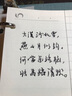 大漠沙如雪，
燕山月似钩。
何当金络脑，
快走踏清秋。